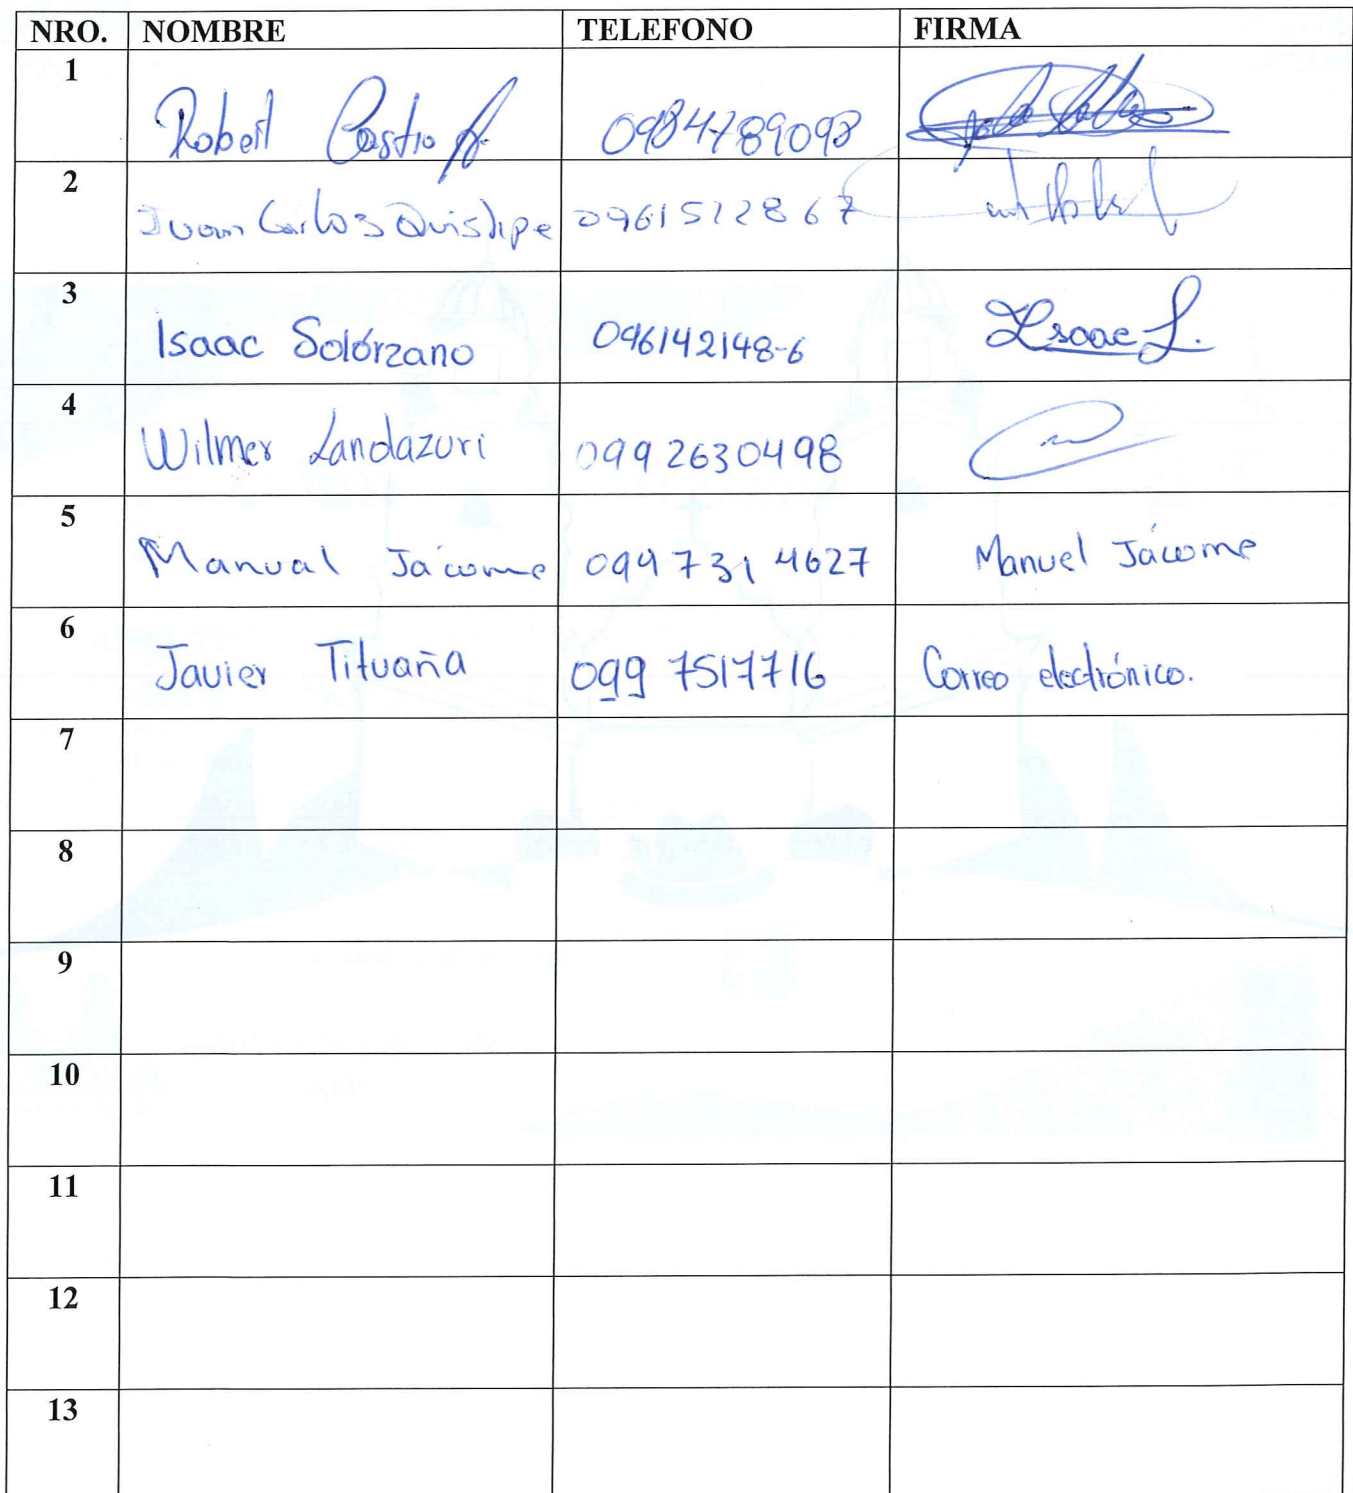 NRO. NOMBRE TELEFONO FIRMA
1 Robert Castro A. 0984789098
2 Juan Carlos Quishpe 0961522867
3 Isaac Solórzano 096142148-6 Isaac S.
4 Wilmer Landazuri 0992630498
5 Manual Jácome 099 731 4627 Manuel Jácome
6 Javier Tituaña 099 7517716 Correo electrónico.
7
8
9
10
11
12
13